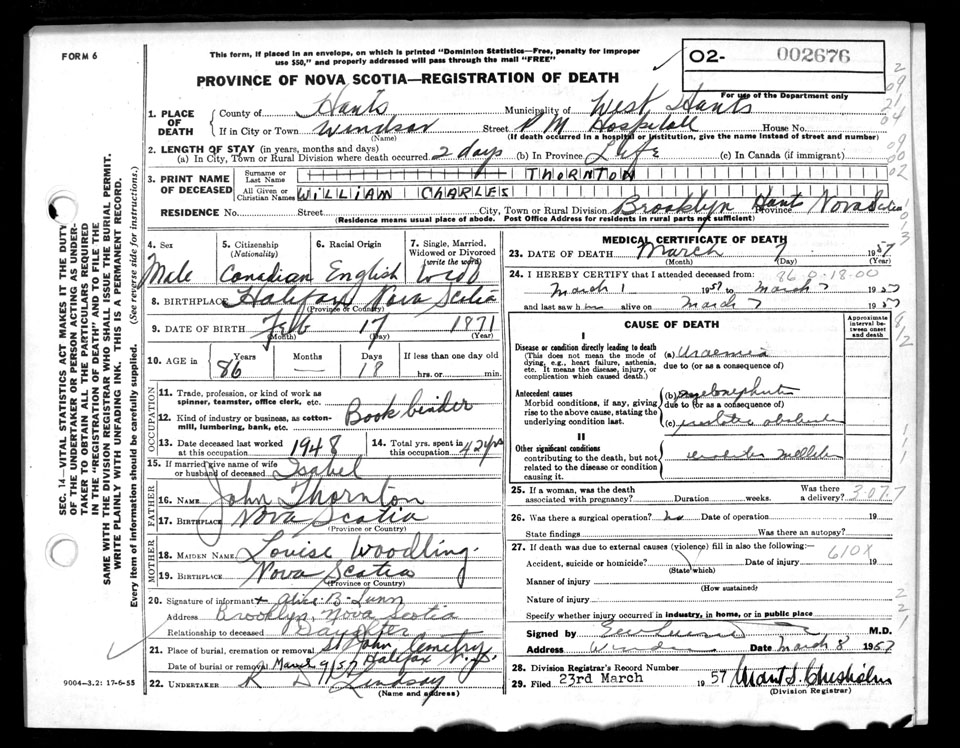 FORM 6
This form, if placed in an envelope, on which is printed "Dominion Statistics—Free, penalty for improper
use $50," and properly addressed will pass through the mail "FREE"
O2- 002676
For use of the Department only
PROVINCE OF NOVA SCOTIA—REGISTRATION OF DEATH
SEC. 14—VITAL STATISTICS ACT MAKES IT THE DUTY
OF THE UNDERTAKER OR PERSON ACTING AS UNDER-
TAKER TO OBTAIN ALL THE PARTICULARS REQUIRED
IN THE "REGISTRATION OF DEATH" AND TO FILE THE
SAME WITH THE DIVISION REGISTRAR WHO SHALL ISSUE THE BURIAL PERMIT.
WRITE PLAINLY WITH UNFADING INK. THIS IS A PERMANENT RECORD.
Every item of information should be carefully supplied. (See reverse side for instructions.)
1. PLACE OF DEATH
County of Hants Municipality of West Hants
If in City or Town Windsor Street P M Hospital House No.
(Name) (If death occurred in a hospital or institution, give the name instead of street and number)
2. LENGTH OF STAY (in years, months and days)
(a) In City, Town or Rural Division where death occurred 2 days (b) In Province Life (c) In Canada (if immigrant)
3. PRINT NAME OF DECEASED
Surname or Last Name THORNTON
All Given or Christian Names WILLIAM CHARLES
RESIDENCE No. Street City, Town or Rural Division Brooklyn Hants Province Nova Scotia
(Residence means usual place of abode. Post Office Address for residents in rural parts not sufficient)
4. Sex Male
5. Citizenship (Nationality) Canadian
6. Racial Origin English
7. Single, Married, Widowed or Divorced (write the word) Wid
8. BIRTHPLACE Halifax Nova Scotia
(Province or Country)
9. DATE OF BIRTH Feb 17 1871
(Month) (Day) (Year)
10. AGE in Years 86 Months — Days 18 If less than one day old hrs. or min.
OCCUPATION
11. Trade, profession, or kind of work as spinner, teamster, office clerk, etc.
Book binder
12. Kind of industry or business, as cotton-mill, lumbering, bank, etc.
13. Date deceased last worked at this occupation 1948
14. Total yrs. spent in this occupation 42 yrs
15. If married give name of wife or husband of deceased Isabel
FATHER
16. NAME John Thornton
17. BIRTHPLACE Nova Scotia
(Province or Country)
MOTHER
18. MAIDEN NAME Louise Woodling
19. BIRTHPLACE Nova Scotia
(Province or Country)
20. Signature of informant x Alice B. Lunn
Address Brooklyn, Nova Scotia
Relationship to deceased Daughter
21. Place of burial, cremation or removal St John Cemetry
Date of burial or removal March 9/57 Halifax N.S.
22. UNDERTAKER R D Lindsay
(Name and address)
9004—3.2: 17-6-55
MEDICAL CERTIFICATE OF DEATH
23. DATE OF DEATH March 7 1957
(Month) (Day) (Year)
24. I HEREBY CERTIFY that I attended deceased from:
March 1 1957 to March 7 1957
and last saw him alive on March 7 1957
CAUSE OF DEATH
Approximate interval between onset and death
I
Disease or condition directly leading to death
(This does not mean the mode of dying, e.g., heart failure, asthenia, etc. It means the disease, injury, or complication which caused death.)
(a) Uraemia
due to (or as a consequence of)
Antecedent causes
Morbid conditions, if any, giving rise to the above cause, stating the underlying condition last.
(b) pyelonephritis
due to (or as a consequence of)
(c) prostatic
II
Other significant conditions
contributing to the death, but not related to the disease or condition causing it.
25. If a woman, was the death associated with pregnancy? Duration weeks. Was there a delivery?
26. Was there a surgical operation? no Date of operation 19
State findings Was there an autopsy?
27. If death was due to external causes (violence) fill in also the following:— 610X
Accident, suicide or homicide? Date of injury 19
(State which)
Manner of injury
(How sustained)
Nature of injury
Specify whether injury occurred in industry, in home, or in public place
Signed by M.D.
Address Windsor Date March 8 1957
28. Division Registrar's Record Number
29. Filed 23rd March 1957 Chisholm
(Division Registrar)